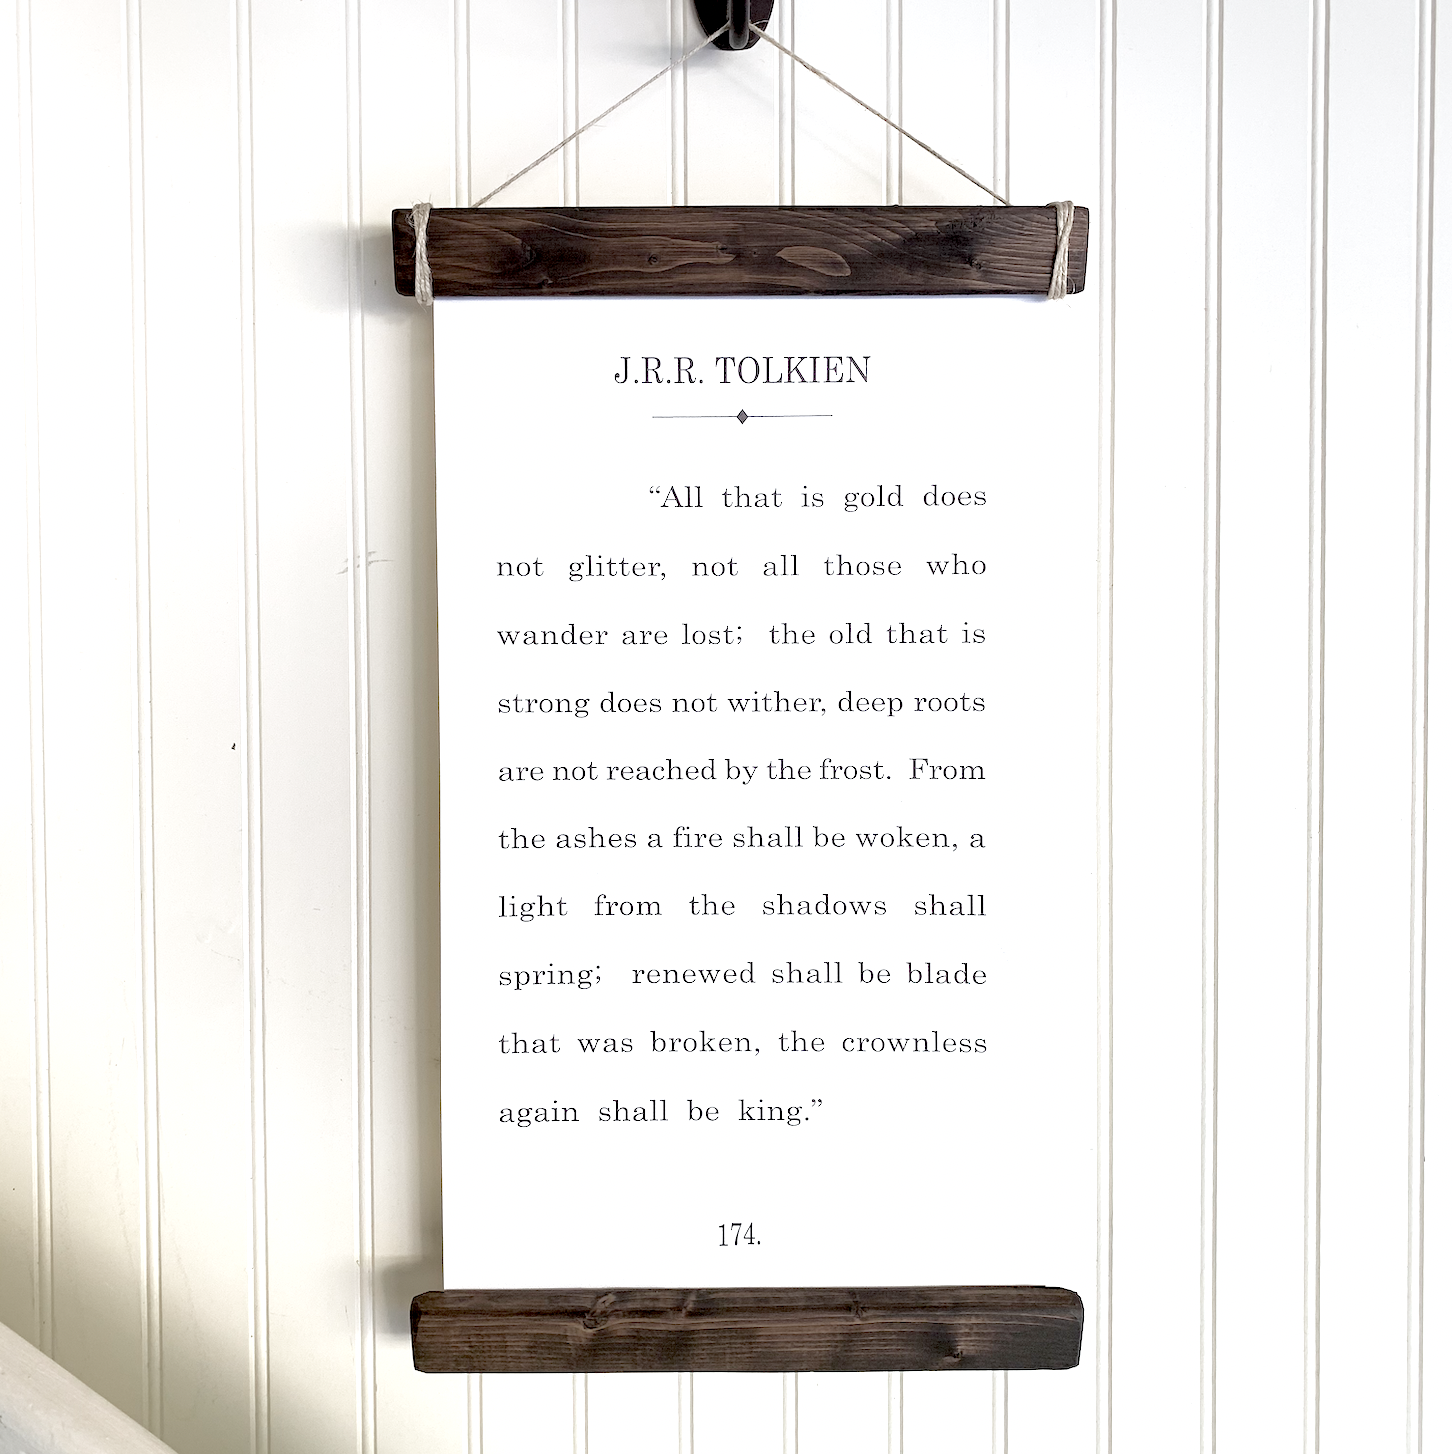 J.R.R. TOLKIEN
“All that is gold does
not glitter, not all those who
wander are lost; the old that is
strong does not wither, deep roots
are not reached by the frost. From
the ashes a fire shall be woken, a
light from the shadows shall
spring; renewed shall be blade
that was broken, the crownless
again shall be king.”
174.